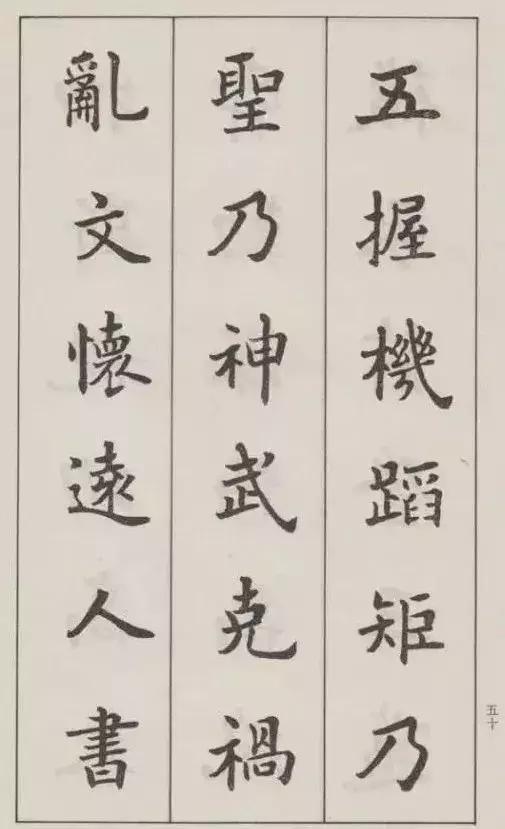 五握機蹈矩乃
聖乃神武克禍
亂文懷遠人書
五十